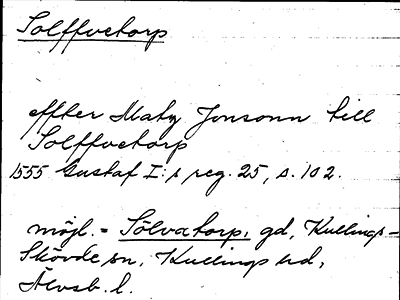 Solffvetorp
effter Matz Jonsonn till
Solffvetorp
1555 Gustaf I:s reg. 25, s. 102.
möjl. = Sölvatorp, gd, Kullings-
Skövde sn, Kullings hd,
Älvsb. l.